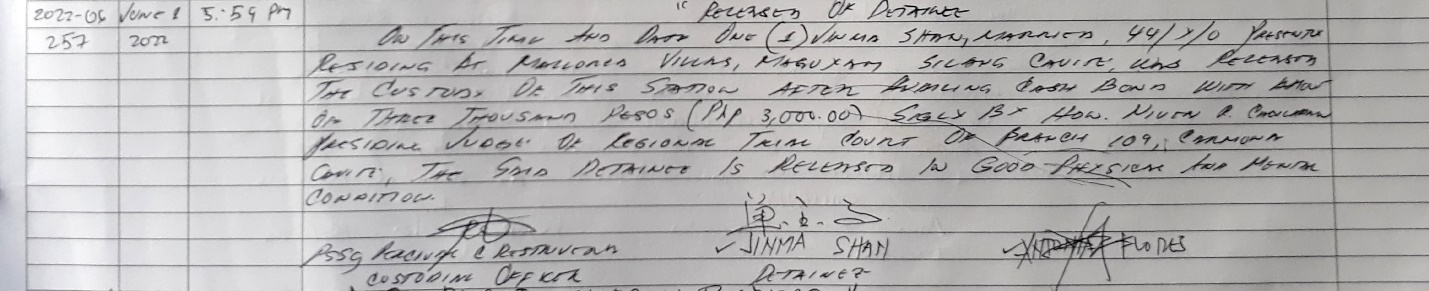 2022-05 JUNE 1 5:59 PM " RELEASED OF DETAINEE
257 2022 ON THIS TIME AND DATE ONE (1) JINMA SHAN, MARRIED, 44/Y/O PRESENTLY
RESIDING AT MALLORCA VILLAS, SILANG CAVITE, WAS RELEASED
THE CUSTODY OF THIS STATION AFTER CASH BOND WITH
OF THREE THOUSAND PESOS (PHP 3,000.00) BY HON.
PRESIDING JUDGE OF REGIONAL TRIAL COURT OF BRANCH 109, CARMONA
CAVITE, THE SAID DETAINEE IS RELEASED IN GOOD PHYSICAL AND MENTAL
CONDITION.
PSSG JINMA SHAN FLORES
CUSTODIAL OFFICER DETAINEE